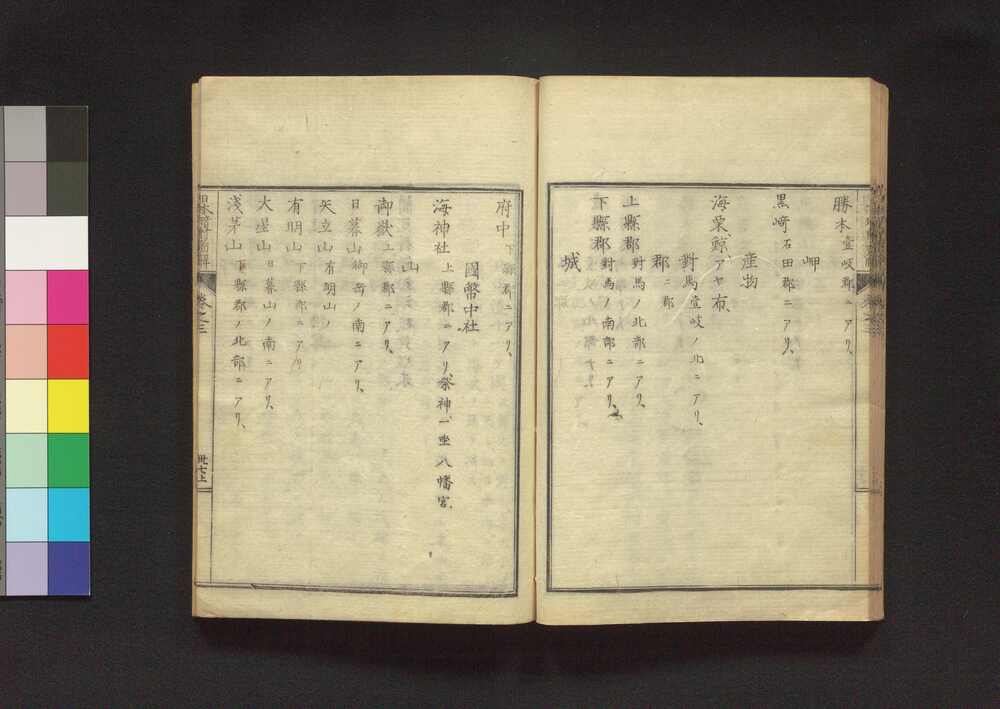 勝本 壹岐郡ニアリ、
岬
黒﨑 石田郡ニアリ、
産物
海栗、鯨、アヤ布、
對馬 壹岐ノ北ニアリ、
郡 ニ郡
上縣郡 對馬ノ北部ニアリ、
下縣郡 對馬ノ南部ニアリ、
城
府中 下縣郡ニアリ、
國幣中社
海神社 上縣郡ニアリ、祭神一坐八幡宮、
山
御嶽 上縣郡ニアリ、
日暮山 御嶽ノ南ニアリ、
矢立山 有明山ノ
有明山 下縣郡ニアリ
大星山 日暮山ノ南ニアリ、
淺茅山 下縣郡ノ北部ニアリ、
卷之三
卅七上